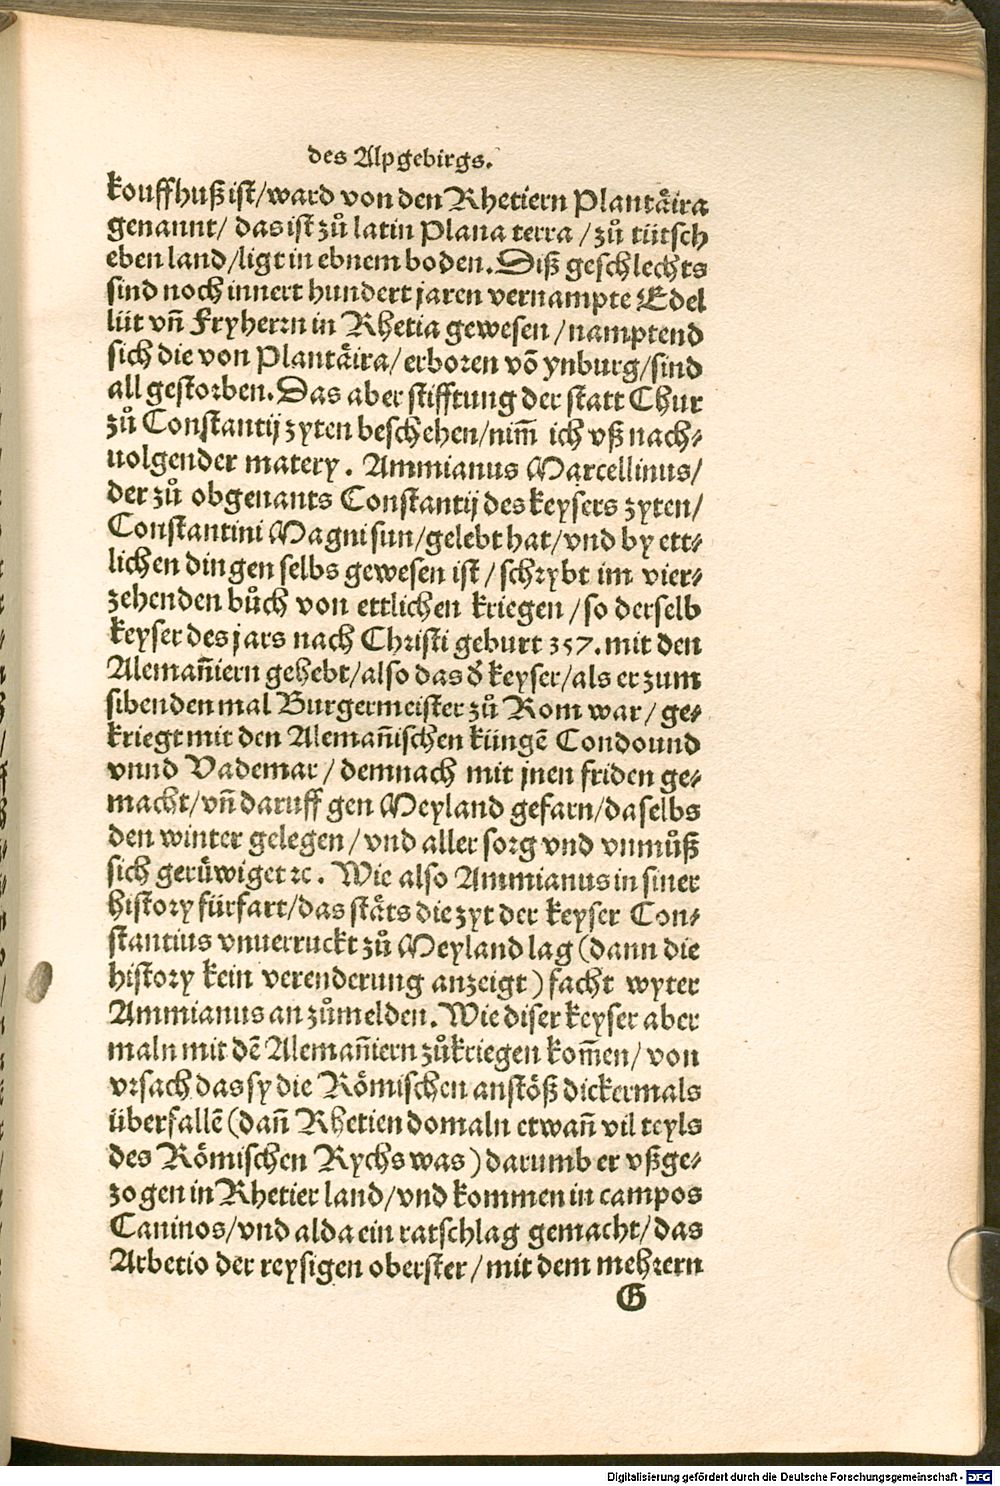 des Alpgebirgs.
kouffhuß ist/ward von den Rhetiern Plantäira
genannt/ das ist zů latin Plana terra /zů tütsch
eben land/ligt in ebnem boden. Diß geschlechts
sind noch innert hundert jaren vernampte Edel
lüt vñ Fryherrn in Rhetia gewesen /namptend
sich die von Plantäira/ erboren võ ynburg/sind
all gestorben. Das aber stifftung der statt Chur
zů Constantij zyten beschehen/nim̃ ich vß nach⸗
uolgender matery. Ammianus Marcellinus/
der zů obgenants Constantij des keysers zyten/
Constantini Magni sun/gelebt hat/vnd by ett⸗
lichen dingen selbs gewesen ist /schrybt im vier⸗
zehenden bůch von ettlichen kriegen /so derselb
keyser des jars nach Christi geburt 357. mit den
Alemañiern gehebt/also das d̕ keyser/als er zum
sibenden mal Burgermeister zů Rom war/ ge⸗
kriegt mit den Alemañischen künge᷑ Condound
vnnd Vademar/ demnach mit jnen friden ge⸗
macht/vñ daruff gen Meyland gefarn/daselbs
den winter gelegen /vnd aller sorg vnd vnmůß
sich gerüwiget ⁊c. Wie also Ammianus in siner
history fürfart/das stäts die zyt der keyser Con⸗
stantius vnuerruckt zů Meyland lag (dann die
history kein verenderung anzeigt) facht wyter
Ammianus an zůmelden. Wie diser keyser aber
maln mit dẽ Alemañiern zůkriegen kom̃en/ von
vrsach das sy die Römischen anstöß dickermals
überfallẽ (dañ Rhetien domaln etwañ vil teyls
des Römischen Rychs was) darumb er vßge⸗
zogen in Rhetier land/vnd kommen in campos
Caninos/vnd alda ein ratschlag gemacht/das
Arbetio der reysigen oberster /mit dem mehrern
G
Digitalisierung gefördert durch die Deutsche Forschungsgemeinschaft - DFG